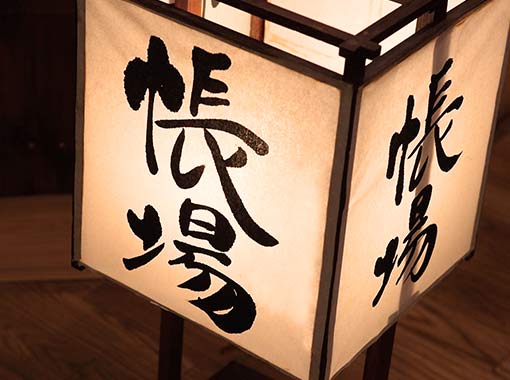 帳場
帳場